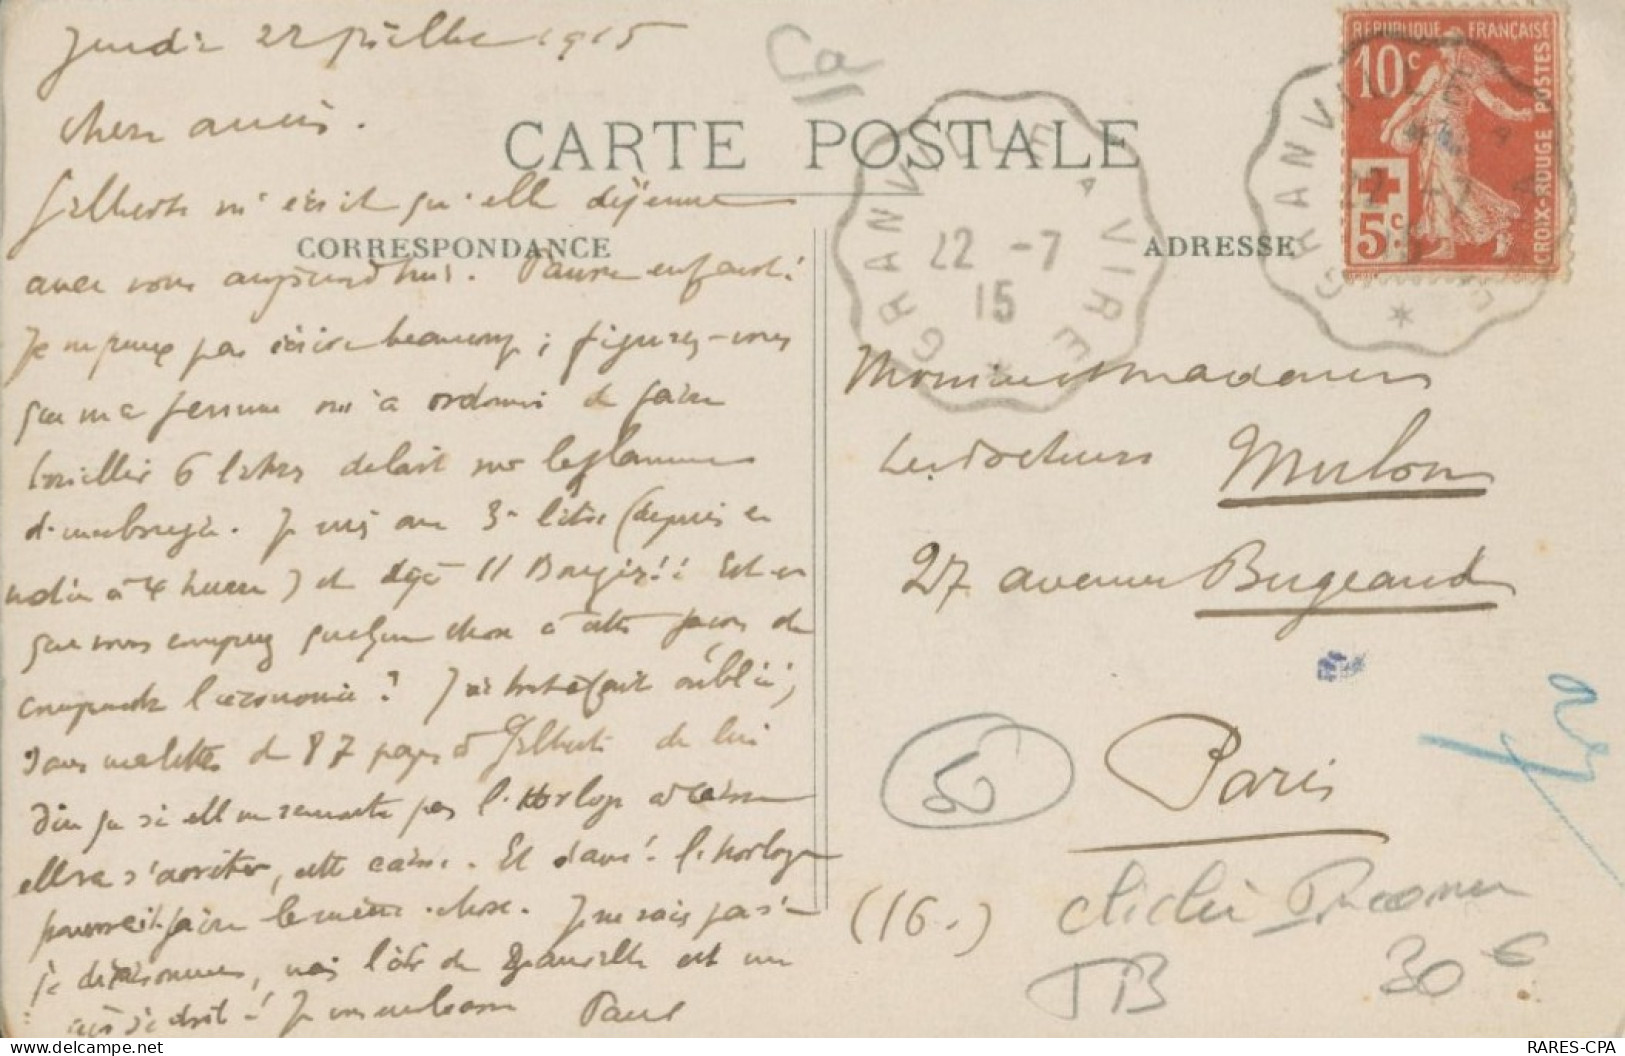 Jeudi 22 juillet 1915
Ca
chers amis.
CARTE POSTALE
Gilberte m'écrit qu'elle déjeune
CORRESPONDANCE
ADRESSE
avec vous aujourd'hui. Pauvre enfant!
Je ne peux pas écrire beaucoup; figurez-vous
que ma femme m'a ordonné de faire
bouillir 6 litres de lait sur
Je suis au 3e litre (depuis
à 4 heures) et déjà 11 Bougies!! Est-ce
que vous comprenez quelque chose à cette façon de
comprendre l'économie? J'ai tout à fait oublié,
dans ma lettre de 87 pages à Gilberte de lui
dire que si elle ne remonte pas l'Horloge
elle va s'arrêter, cette caisse. Et dame! l'horloge
pourrait faire le même chose. Je ne sais pas si
je déraisonne, mais l'été de Granville est un
Je vous embrasse Paul
GRANVILLE A VIRE
22 -7
15
GRANVILLE A VIRE
22 -7
15
RÉPUBLIQUE FRANÇAISE
10c
5c
CROIX-ROUGE POSTES
Monsieur Madame
Les docteurs Mulon
27 avenue Bugeaud
Paris
50
(16e)
cliché
TB
30 €
RARES-CPA